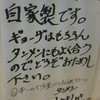 自家製です。
ギョーザはもちろん
タンメンにもよく合う
のでどうぞおためし
下さい。
タンメン